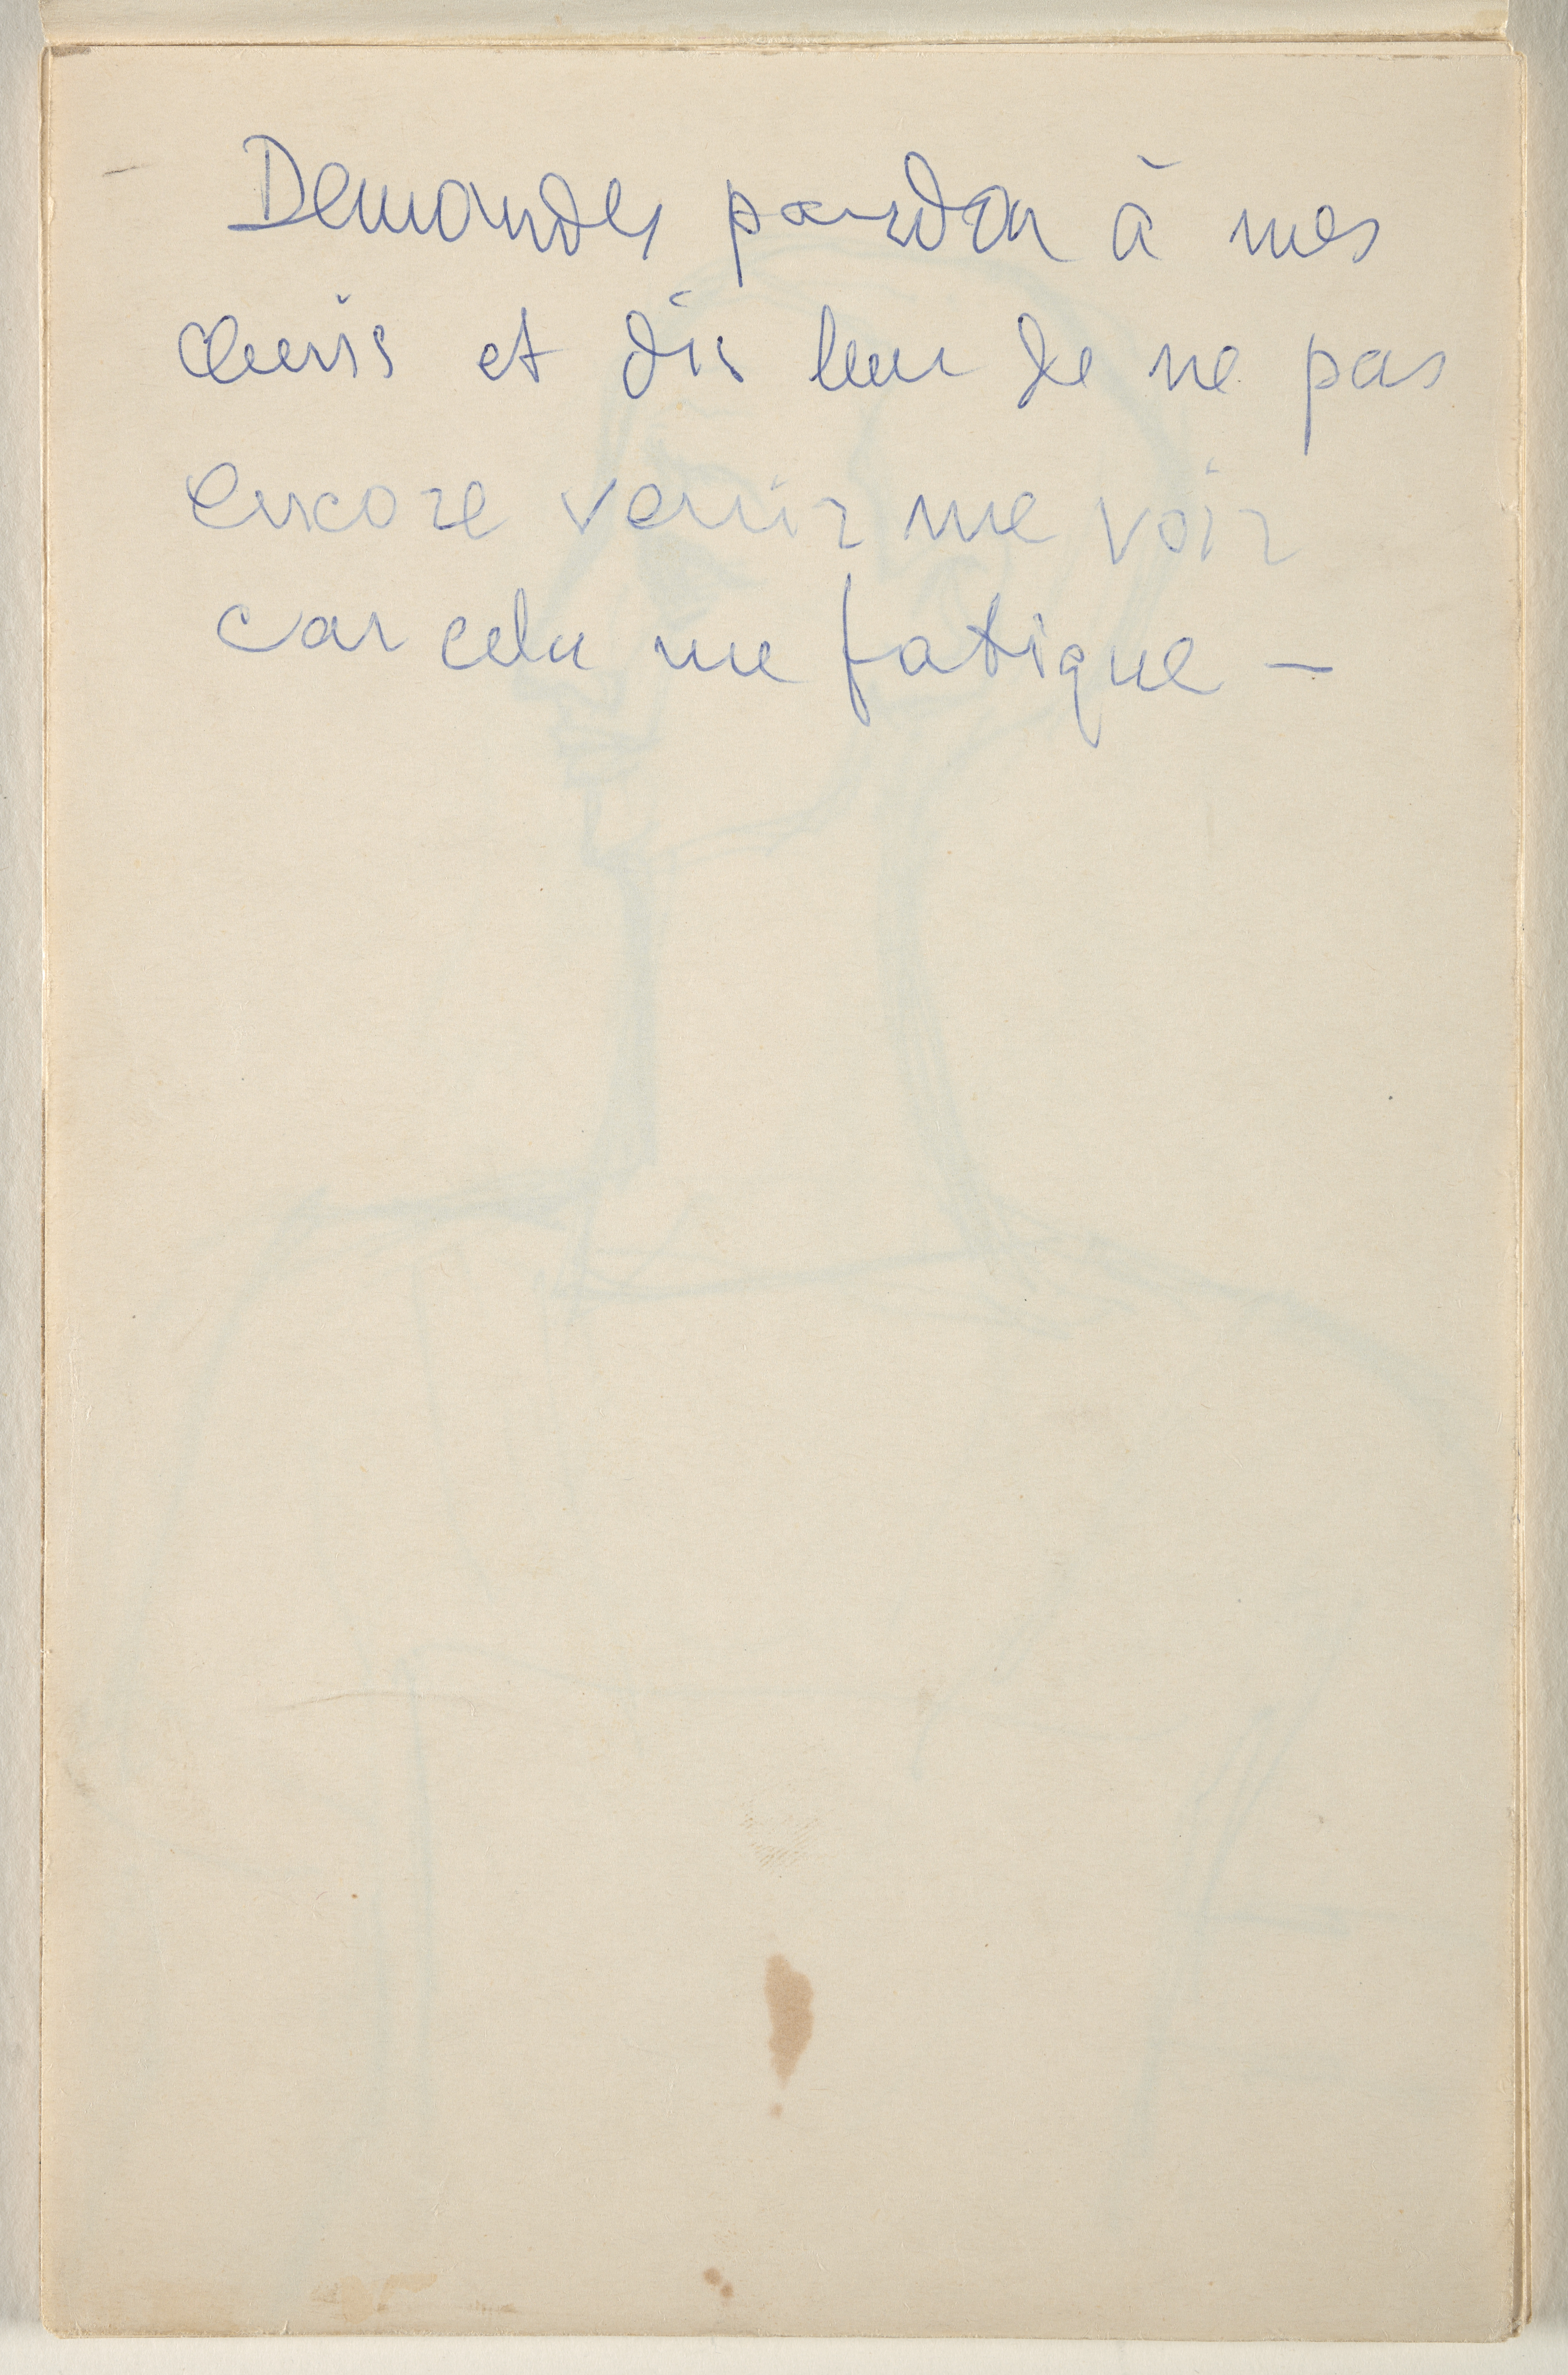 Demandes pardon à mes
amis et dis leur de ne pas
encore venir me voir
car cela me fatigue –